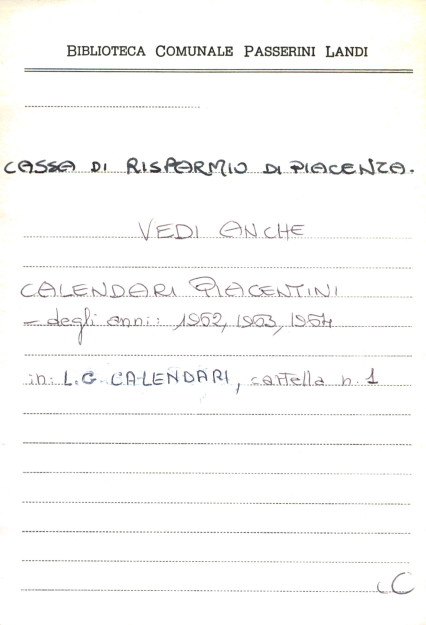 BIBLIOTECA COMUNALE PASSERINI LANDI
CASSA DI RISPARMIO DI PIACENZA.
VEDI ANCHE
CALENDARI PIACENTINI
- degli anni: 1952, 1953, 1954
in: L.G. CALENDARI, cartella n. 1